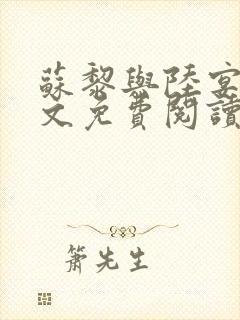 蘇黎與陸宴
文免費閱讀
簫先生